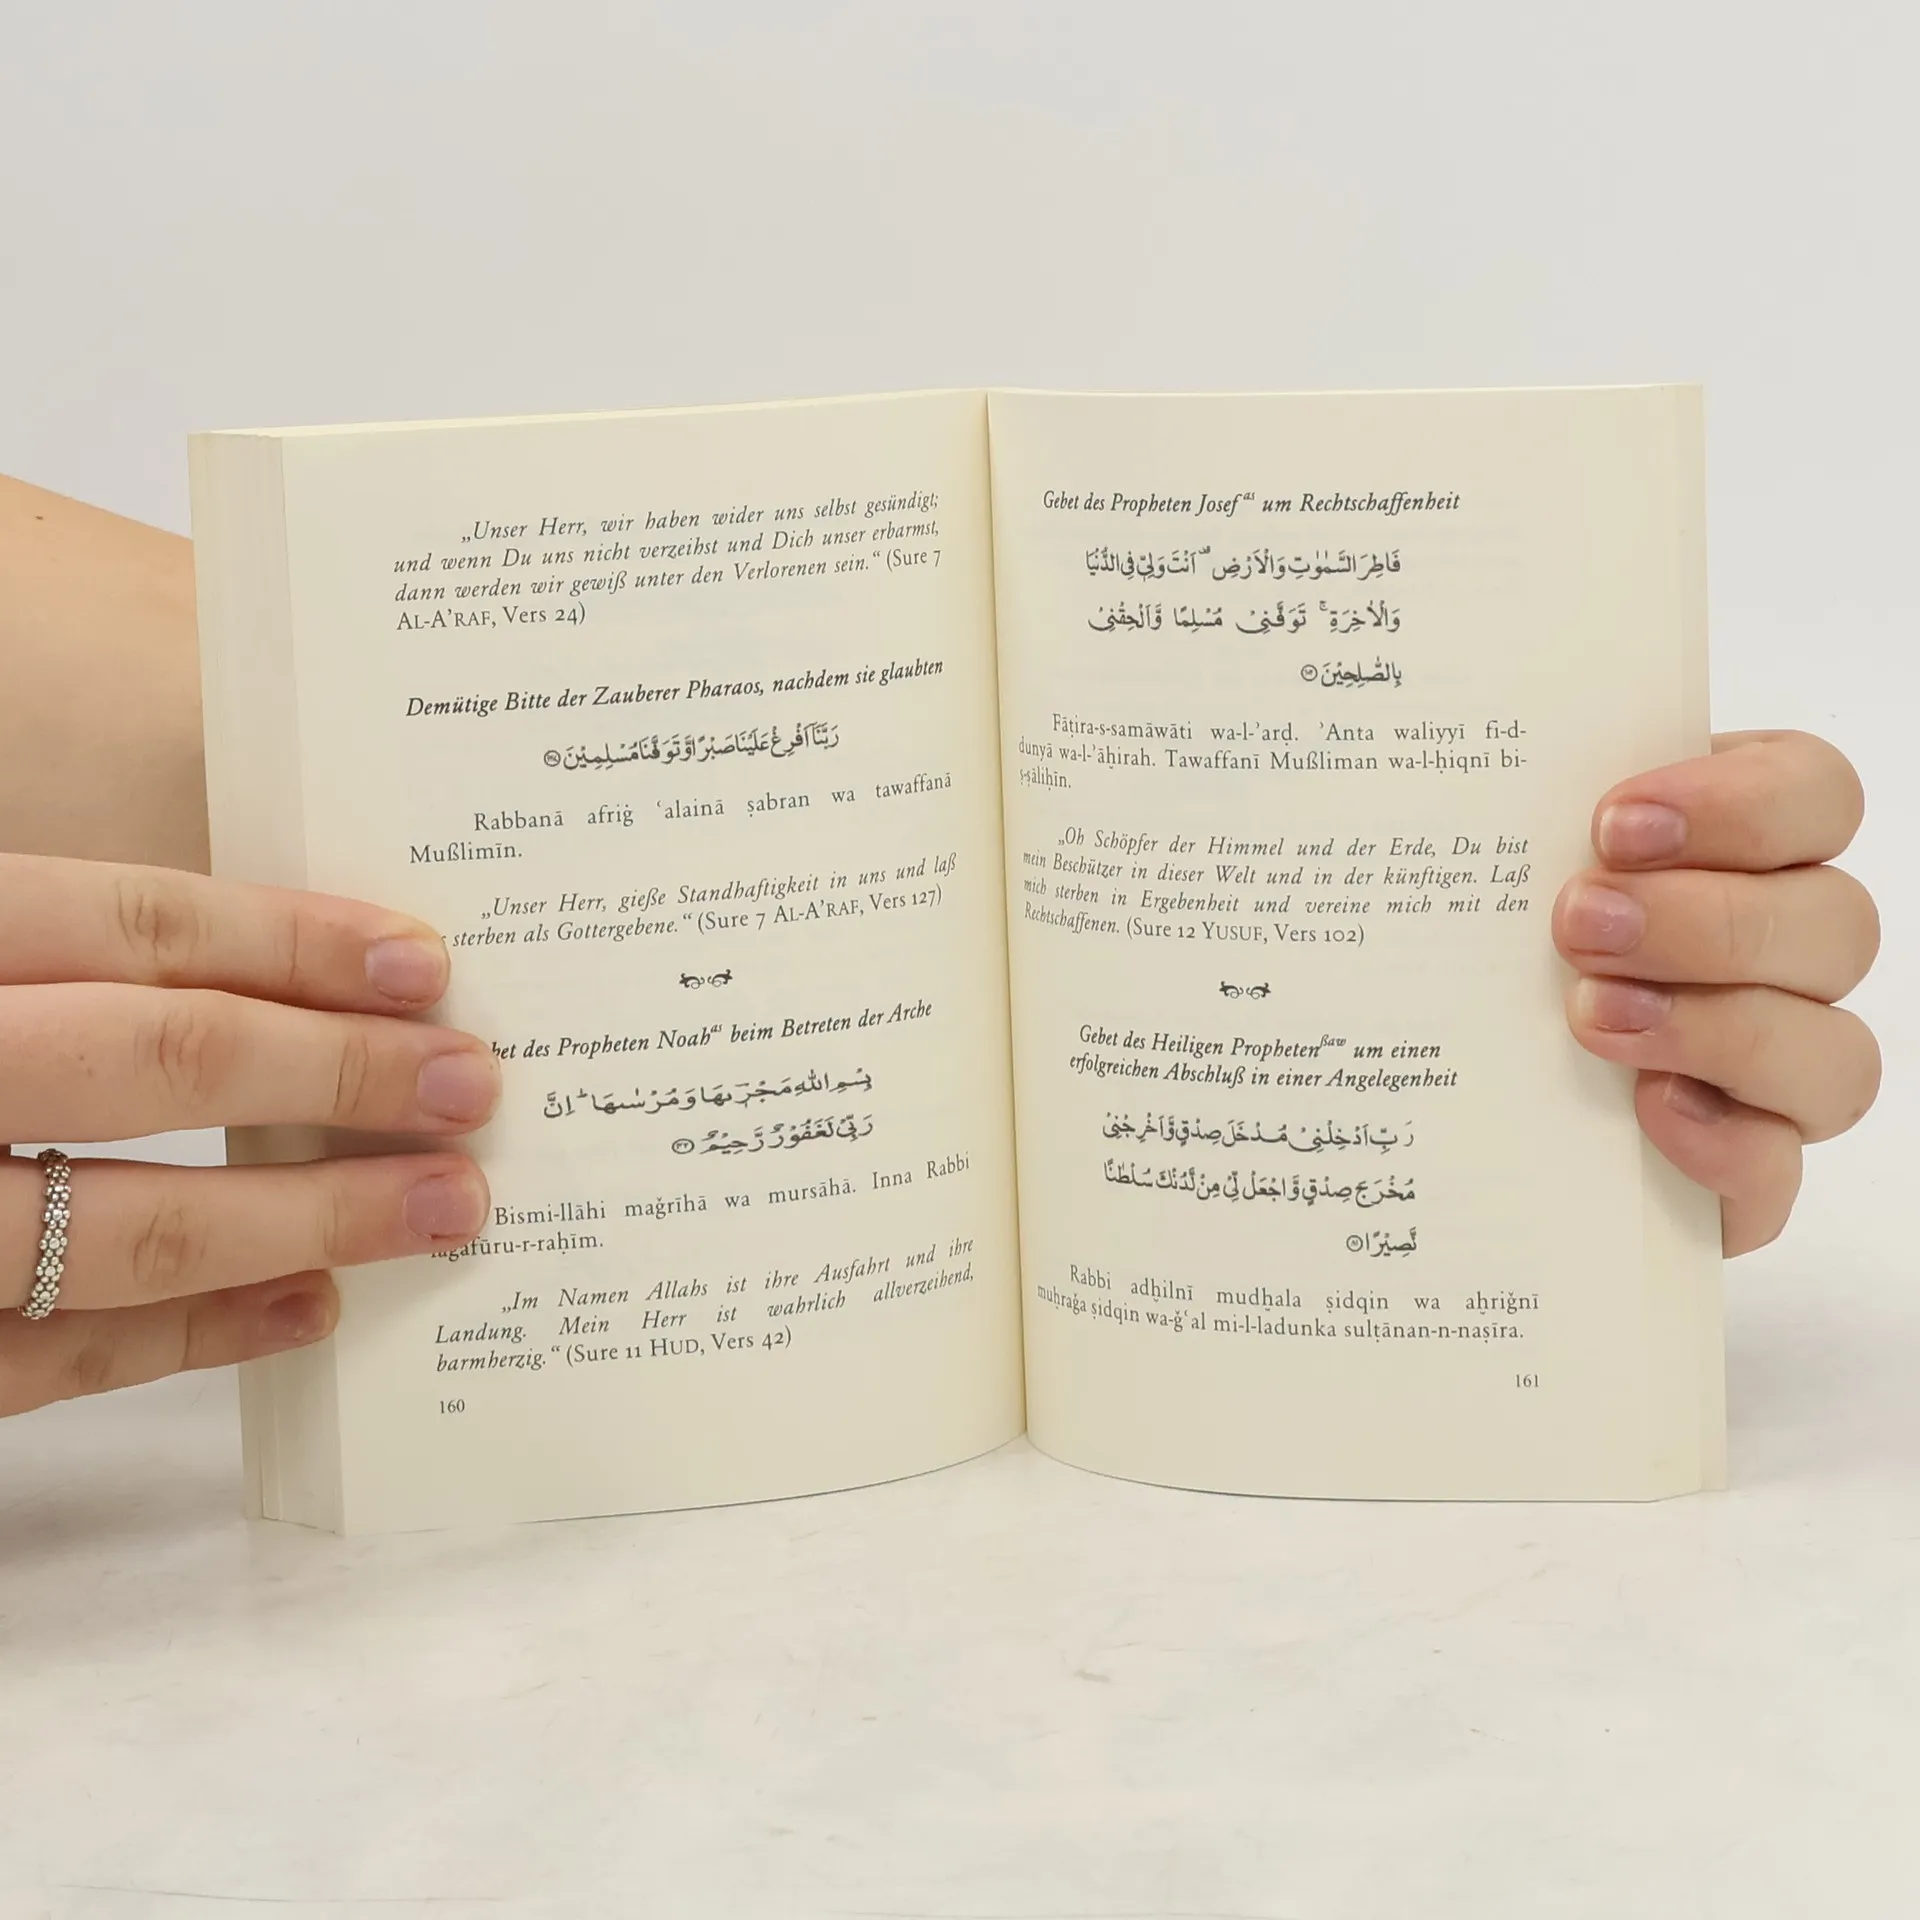 „Unser Herr, wir haben wider uns selbst gesündigt;
und wenn Du uns nicht verzeihst und Dich unser erbarmst,
dann werden wir gewiß unter den Verlorenen sein.“ (Sure 7
AL-A’RAF, Vers 24)
Demütige Bitte der Zauberer Pharaos, nachdem sie glaubten
رَبَّنَآ اَفْرِغْ عَلَيْنَا صَبْرًا وَّ تَوَفَّنَا مُسْلِمِيْنَ ۝۱۲۷
Rabbanā afriġ ‘alainā ṣabran wa tawaffanā
Mußlimīn.
„Unser Herr, gieße Standhaftigkeit in uns und laß
sterben als Gottergebene.“ (Sure 7 AL-A’RAF, Vers 127)
des Propheten Noah as beim Betreten der Arche
بِسْمِ اللّٰهِ مَجْرٖىهَا وَ مُرْسٰىهَا ؕ اِنَّ
رَبِّيْ لَغَفُوْرٌ رَّحِيْمٌ ۝۴۲
Bismi-llāhi maǧrīhā wa mursāhā. Inna Rabbi
laġafūru-r-raḥīm.
„Im Namen Allahs ist ihre Ausfahrt und ihre
Landung. Mein Herr ist wahrlich allverzeihend,
barmherzig.“ (Sure 11 HUD, Vers 42)
160
Gebet des Propheten Josef as um Rechtschaffenheit
فَاطِرَ السَّمٰوٰتِ وَالْاَرْضِ ۟ اَنْتَ وَلِيّٖ فِي الدُّنْيَا
وَالْاٰخِرَةِ ۚ تَوَفَّنِيْ مُسْلِمًا وَّاَلْحِقْنِيْ
بِالصّٰلِحِيْنَ ۝۱۰۲
Fāṭira-s-samāwāti wa-l-’arḍ. ’Anta waliyyī fi-d-
dunyā wa-l-’āḫirah. Tawaffanī Mußliman wa-l-ḥiqnī bi-
ṣ-ṣāliḥīn.
„Oh Schöpfer der Himmel und der Erde, Du bist
mein Beschützer in dieser Welt und in der künftigen. Laß
mich sterben in Ergebenheit und vereine mich mit den
Rechtschaffenen. (Sure 12 YUSUF, Vers 102)
Gebet des Heiligen Propheten ßaw um einen
erfolgreichen Abschluß in einer Angelegenheit
رَبِّ اَدْخِلْنِيْ مُدْخَلَ صِدْقٍ وَّاَخْرِجْنِيْ
مُخْرَجَ صِدْقٍ وَّاجْعَلْ لِّيْ مِنْ لَّدُنْكَ سُلْطٰنًا
نَّصِيْرًا ۝۸۱
Rabbi adḫilnī mudḫala ṣidqin wa aḫriǧnī
muḫraǧa ṣidqin wa-ǧ‘al mi-l-ladunka sulṭānan-n-naṣīra.
161